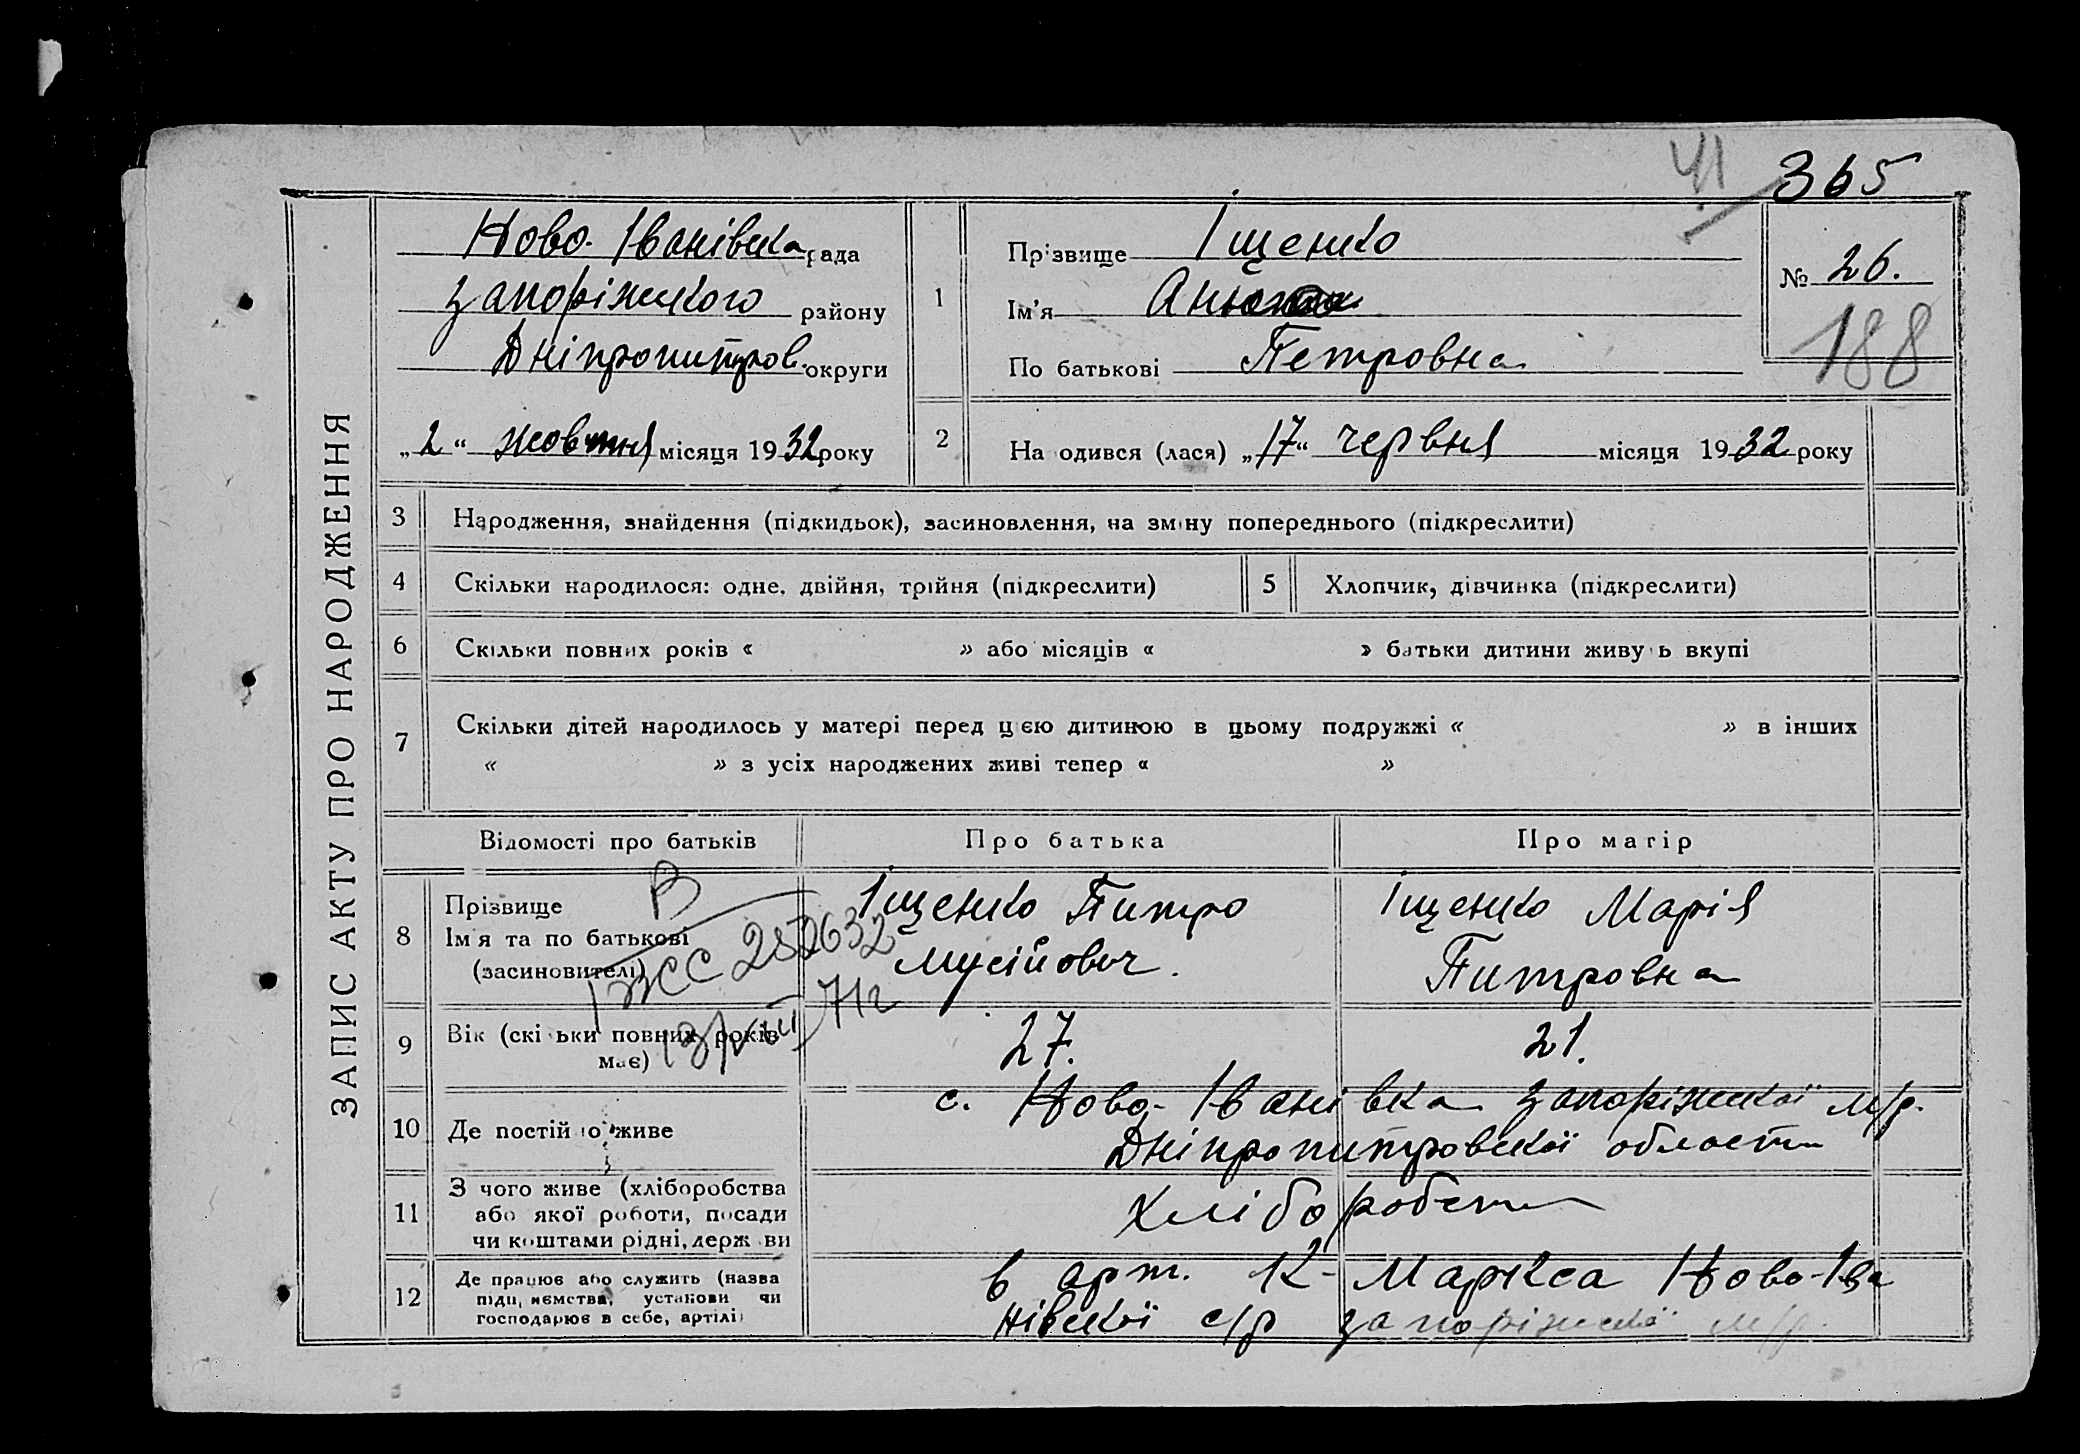 41 365
ЗАПИС АКТУ ПРО НАРОДЖЕННЯ
Ново-Іванівска рада
Запоріжского району
Дніпропитров. округи
„2“ жовтня місяця 1932 року
1 Прізвище Іщенко
Ім'я
По батькові Петровна
№ 26.
188
2 На одився (лася) „17“ червня місяця 1932 року
3 Народження, знайдення (підкидьок), засиновлення, на зміну попереднього (підкреслити)
4 Скільки народилося: одне, двійня, трійня (підкреслити) 5 Хлопчик, дівчинка (підкреслити)
6 Скільки повних років « » або місяців « » батьки дитини живу ь вкупі
7 Скільки дітей народилось у матері перед цією дитиною в цьому подружжі « » в інших
« » з усіх народжених живі тепер « »
Відомості про батьків Про батька Про матір
8 Прізвище
Ім'я та по батькові
(засиновителі)
Іщенко Питро
Мусійович.
Іщенко Марія
Питровна
В
ЖС 252632
71г
9 Вік (скі ьки повних років
має)
27. 21.
10 Де постійно живе
с. Ново-Іванівка Запоріжскої м/р.
Дніпропитровскої области
11 З чого живе (хліборобства
або якої роботи, посади
чи коштами рідні, держ ви
12 Де працює або служить (назва
підприємства, установи чи
господарює в себе, артілі)
в арт. К-Маркса Ново-Іва
нівскої с/р Запоріжскої м/р.